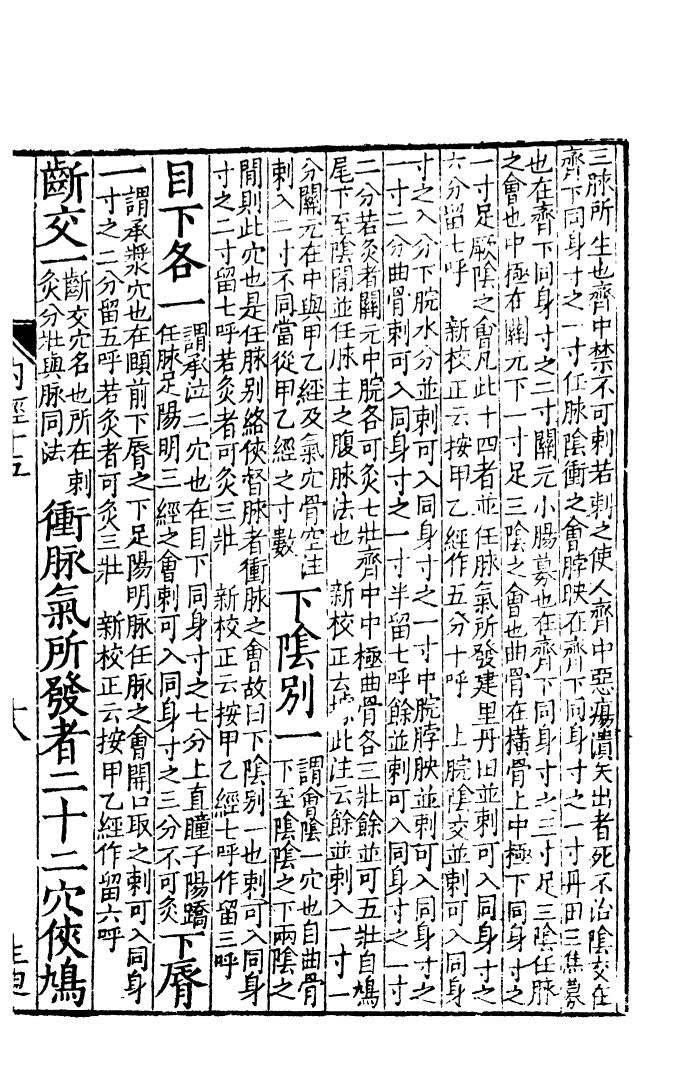 三脉所生也齊中禁不可刺若刺之使人齊中惡瘍潰矢出者死不治陰交在
齊下同身寸之一寸任脉陰衝之會脖胦在齊下同身寸之一寸丹田三焦募
也在齊下同身寸之二寸關元小腸募也在齊下同身寸之三寸足三陰任脉
之會也中極在關元下一寸足三陰之會也曲骨在橫骨上中極下同身寸之
一寸足厥陰之會凡此十四者並任脉氣所發建里丹田並刺可入同身寸之
六分留七呼 新校正云按甲乙經作五分十呼 上脘陰交並刺可入同身
寸之八分下脘水分並刺可入同身寸之一寸中脘脖胦並刺可入同身寸之
一寸二分曲骨刺可入同身寸之一寸半留七呼餘並刺可入同身寸之一寸
二分若灸者關元中脘各可灸七壯齊中中極曲骨各三壯餘並可五壯自鳩
尾下至陰間並任脉主之腹脉法也 新校正云據此注云餘並刺入一寸一
分關元在中與甲乙經及氣穴骨空注
刺入二寸不同當從甲乙經之寸數
下陰別一
謂會陰一穴也自曲骨
下至陰陰之下兩陰之
間則此穴也是任脉別絡俠督脉者衝脉之會故曰下陰別一也刺可入同身
寸之二寸留七呼若灸者可灸三壯 新校正云按甲乙經七呼作留三呼
目下各一
謂承泣二穴也在目下同身寸之七分上直瞳子陽蹻
任脉足陽明三經之會刺可入同身寸之三分不可灸
下脣
一
謂承漿穴也在頤前下脣之下足陽明脉任脉之會開口取之刺可入同身
寸之二分留五呼若灸者可灸三壯 新校正云按甲乙經作留六呼
齗交一
齗交穴名也所在刺
灸分壯與脉同法
衝脉氣所發者二十二穴俠鳩
內經十五
十八